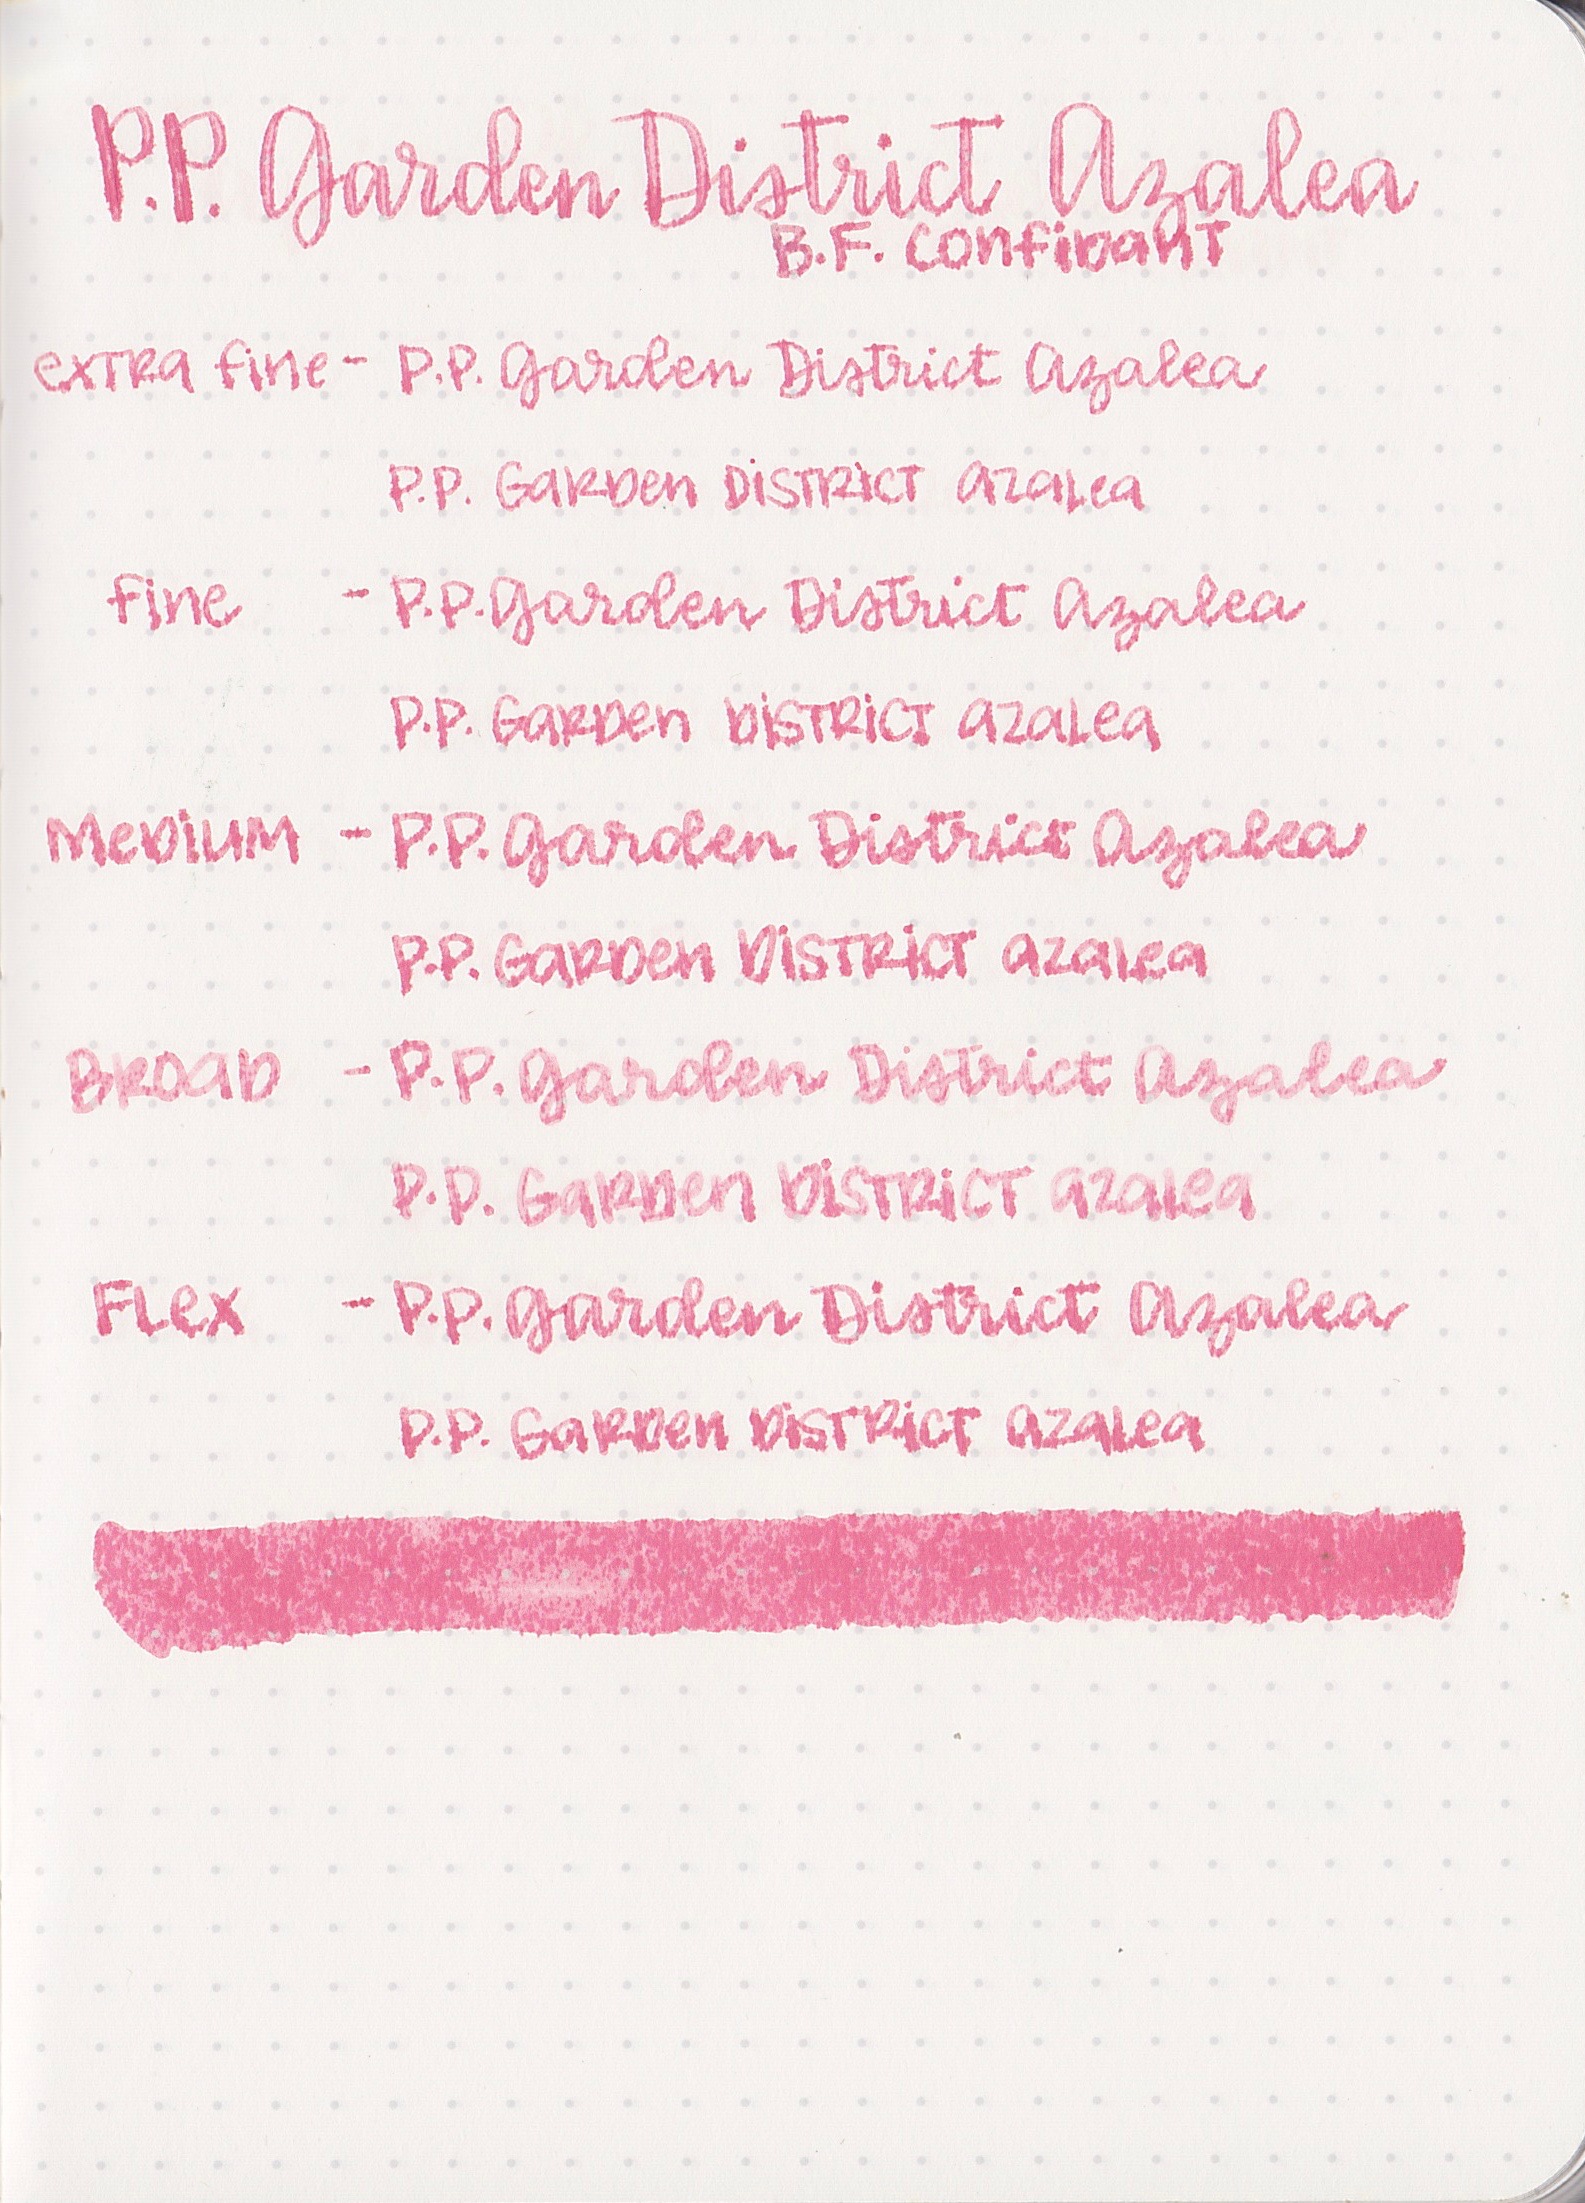 P.P. Garden District Azalea
B.F. Confidant
extra fine - P.P. Garden District Azalea
P.P. Garden District Azalea
fine - P.P. Garden District Azalea
P.P. Garden District Azalea
Medium - P.P. Garden District Azalea
P.P. Garden District Azalea
Broad - P.P. Garden District Azalea
P.P. Garden District Azalea
Flex - P.P. Garden District Azalea
P.P. Garden District Azalea